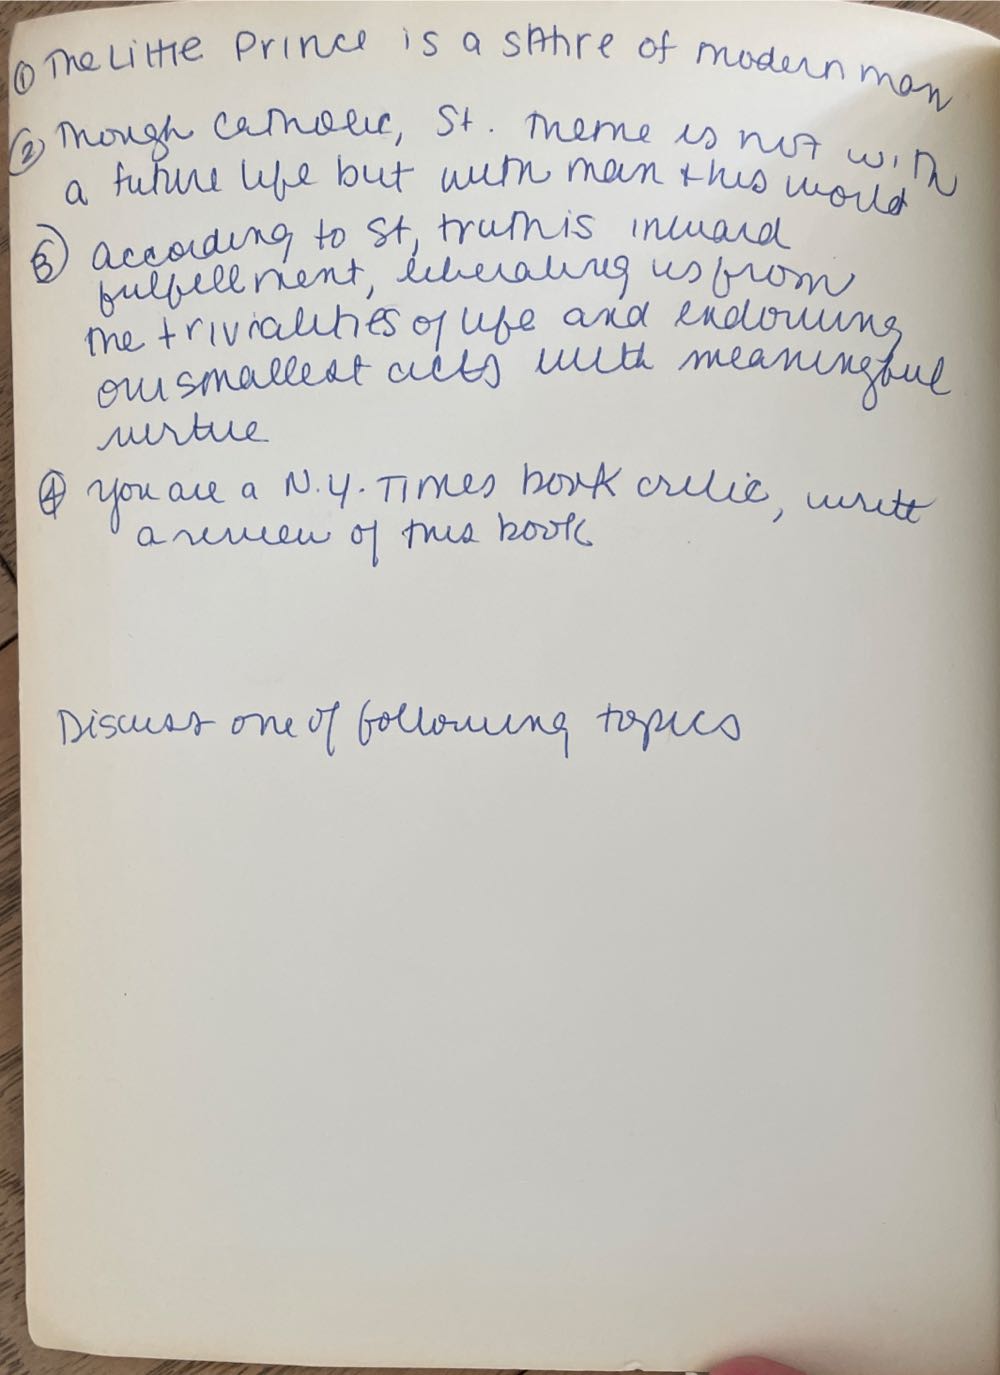 ① The Little Prince is a satire of modern man
② Though Catholic, St. theme is not with
a future life but with man + this world
③ According to St, truth is inward
fulfillment, liberating us from
the trivialities of life and endowing
our smallest acts with meaningful
virtue
④ You are a N.Y. Times book critic, write
a review of this book
Discuss one of following topics